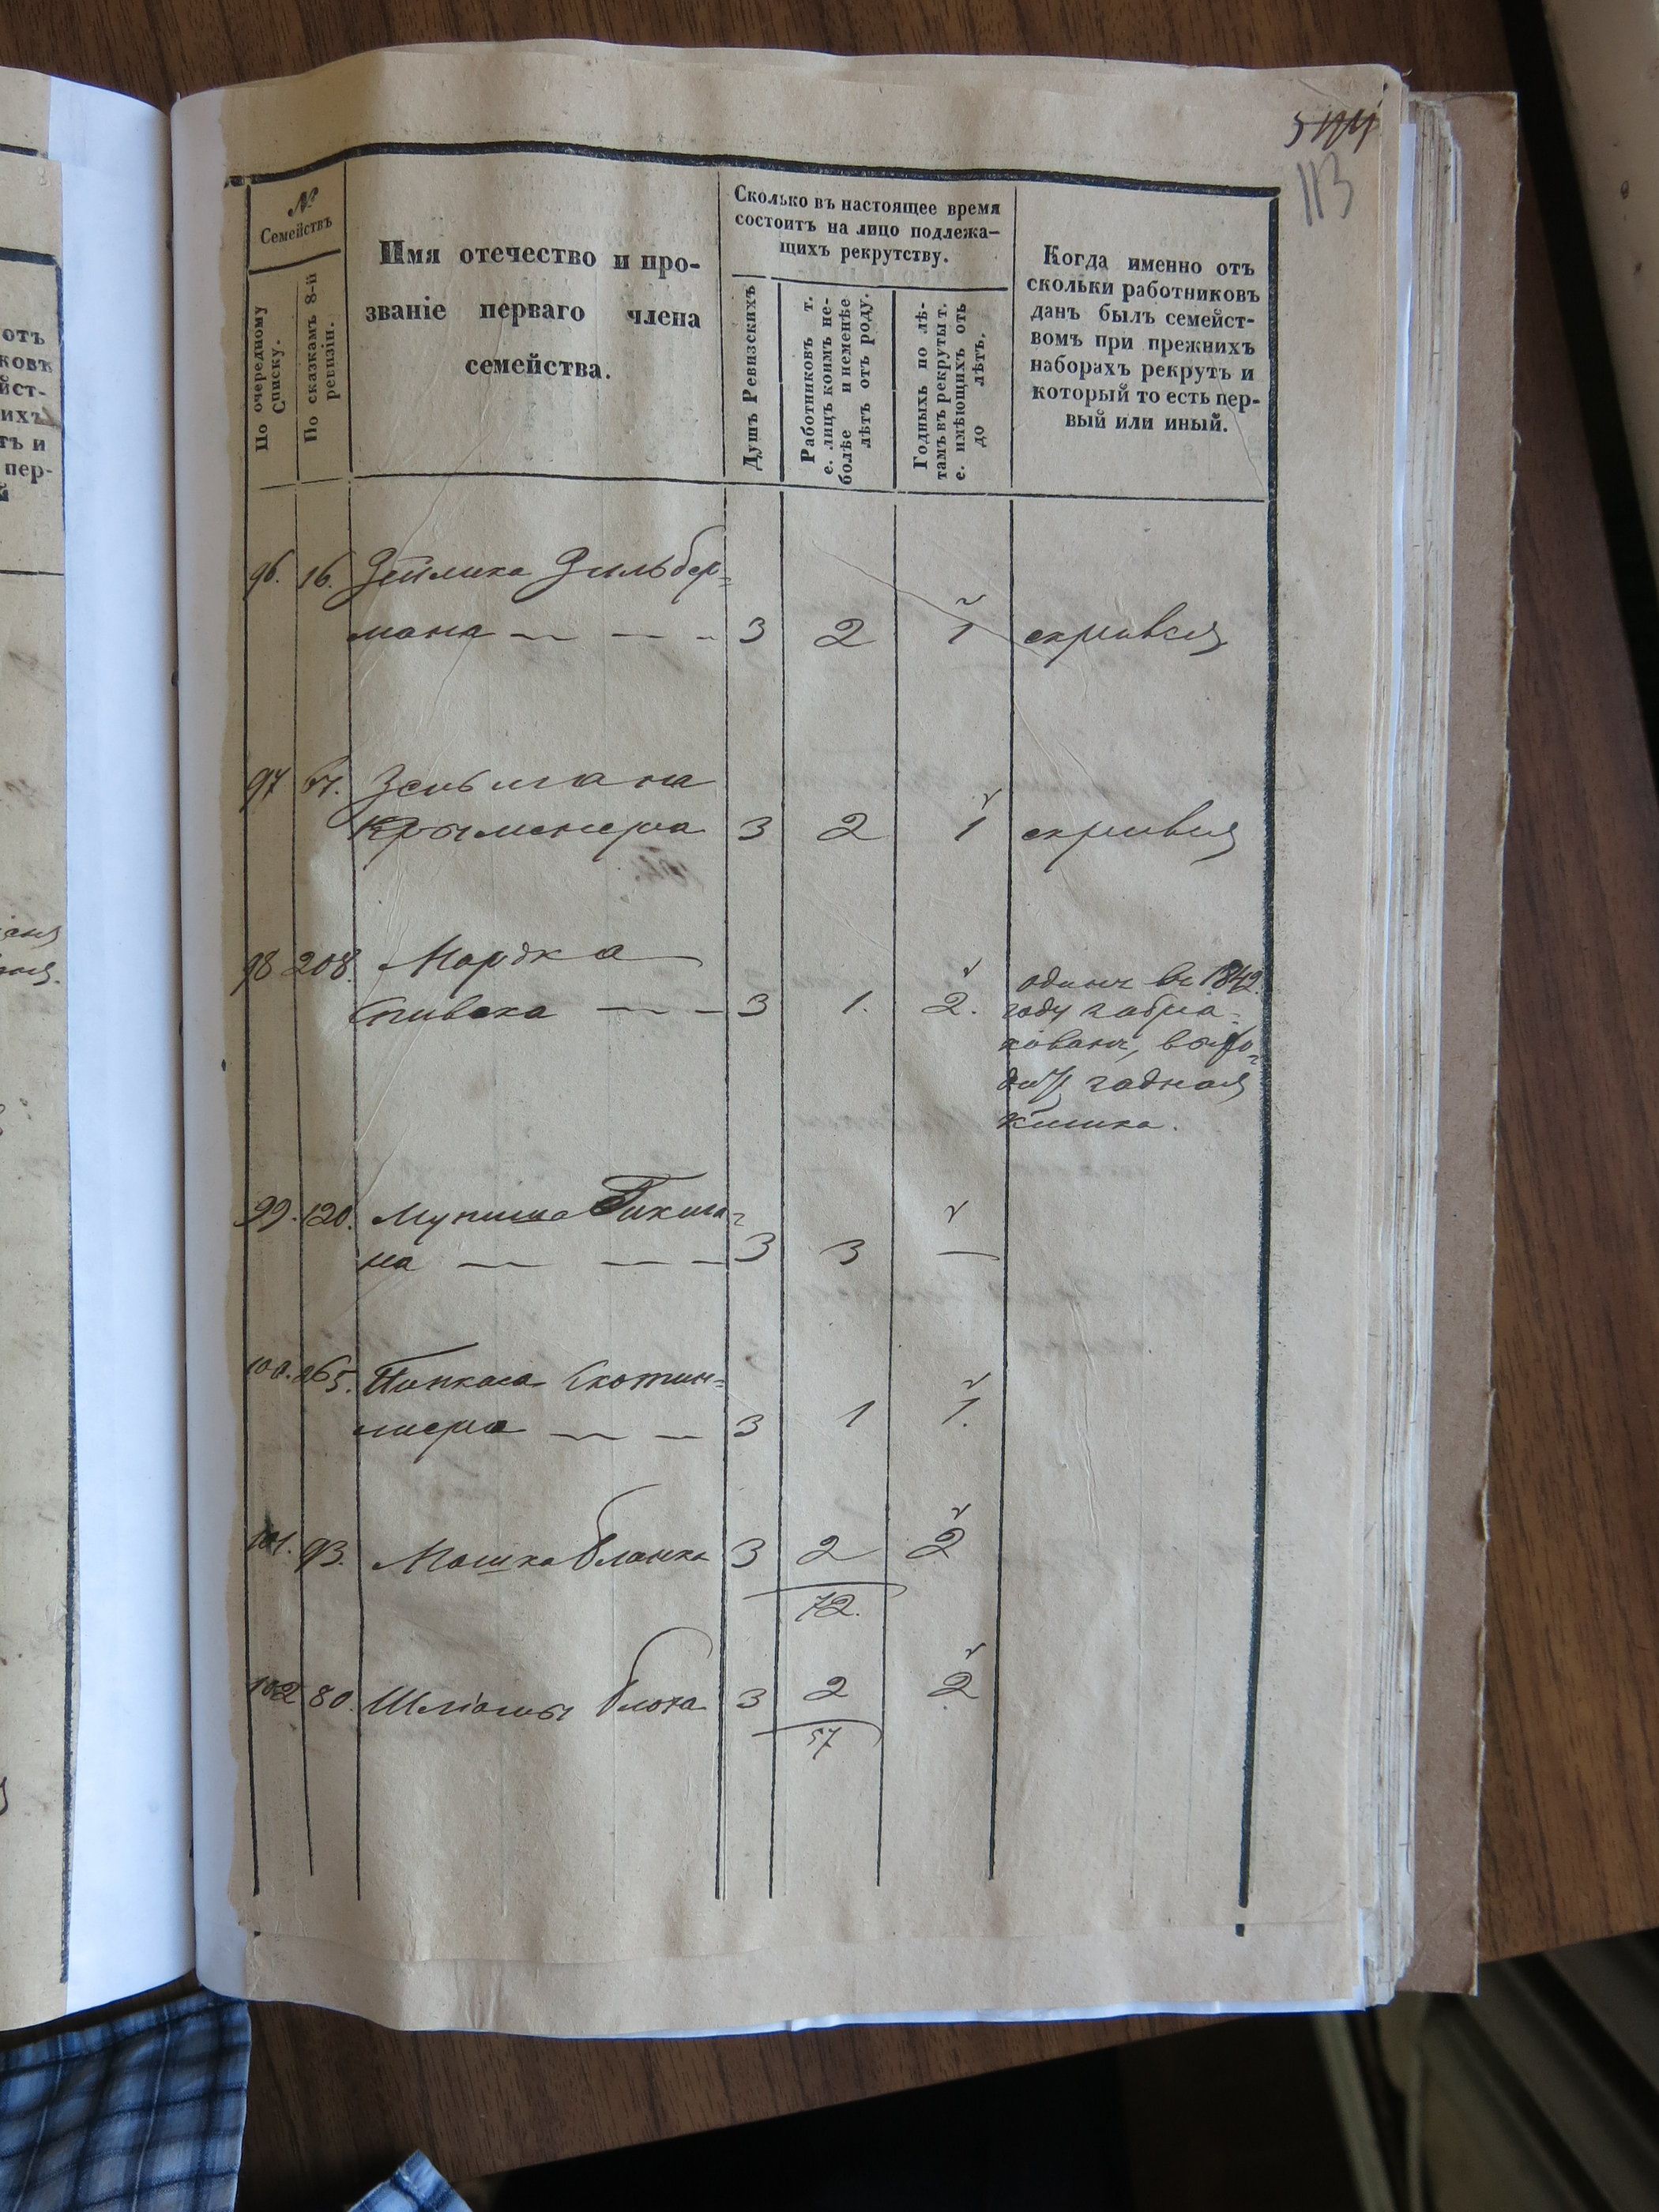 113
№
Семействъ
По очередному
Списку.
По сказкамъ 8-й
ревизіи.
Имя отечество и про-
званіе перваго члена
семейства.
Сколько въ настоящее время
состоитъ на лицо подлежа-
щихъ рекрутству.
Душъ Ревизскихъ
Работниковъ т.
е. лицъ коимъ не-
болѣе и неменѣе
лѣтъ отъ роду.
Годныхъ по лѣ-
тамъ въ рекруты т.
е. имѣющихъ отъ
до лѣтъ.
Когда именно отъ
скольки работниковъ
данъ былъ семейст-
вомъ при прежнихъ
наборахъ рекрутъ и
который то есть пер-
вый или иный.
96. 16. Зейлика Зильбер=
мана 3 2 1 скрывся
97 Зельмана
Крыменера 3 2 1 скрывся
98 208. Мордка
Спивака 3 1. 2.
одинъ въ 1842
году забра-
кованъ, выхо-
дитъ задная
кишка.
99. 120. Гикма-
на 3 3 —
100. 265. Пинкаса
3 1 1.
101. 93. Мошка Бланка 3 2 2
72.
102 80. Шліомы Блоха 3 2 2
57
отъ
ковъ
йст-
ихъ
тъ и
пер-
й